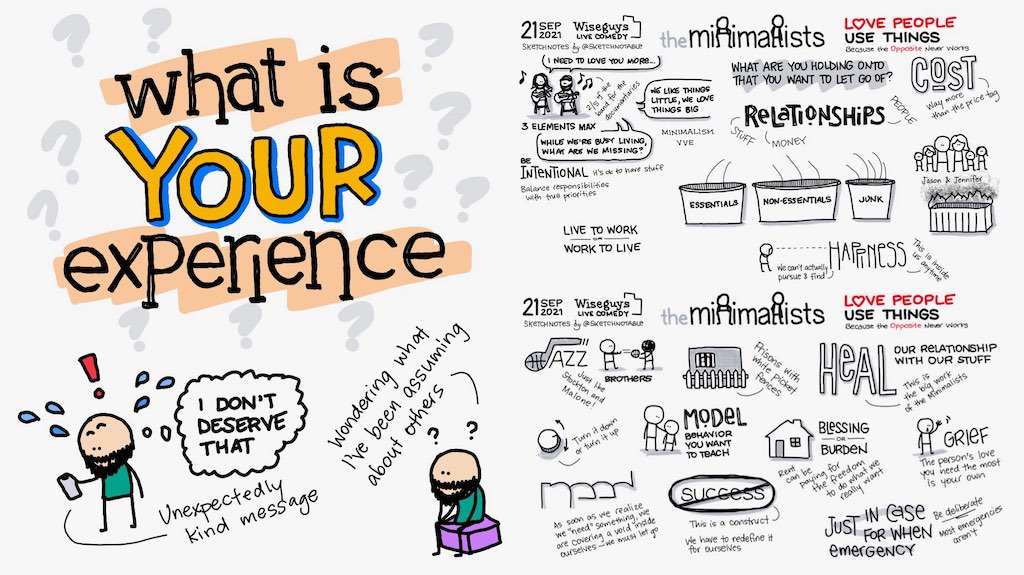 what is
YOUR
experience
!
I DON'T
DESERVE
THAT
Unexpectedly
kind message
Wondering what
I've been assuming
about others
? ?
21 SEP
2021
Wiseguys
LIVE COMEDY
SKETCHNOTES by @SKETCHNOTABLE
the minimalists
LOVE PEOPLE
USE THINGS
Because the Opposite Never Works
I NEED TO LOVE YOU MORE...
2/5 of the
band for the
documentaries
WE LIKE THINGS
LITTLE, WE LOVE
THINGS BIG
3 ELEMENTS MAX
WHILE WE'RE BUSY LIVING,
WHAT ARE WE MISSING?
MINIMALISM
VVE
BE
INTENTIONAL It's ok to have stuff
Balance responsibilities
with true priorities
LIVE TO WORK
OR
WORK TO LIVE
WHAT ARE YOU HOLDING ONTO
THAT YOU WANT TO LET GO OF?
RELATIONSHIPS
STUFF
MONEY
PEOPLE
ESSENTIALS
NON-ESSENTIALS
JUNK
COST
Way more
than the price tag
Jason & Jennifer
HAPPINESS
We can't actually
pursue & find
This is inside
us anytime
21 SEP
2021
Wiseguys
LIVE COMEDY
SKETCHNOTES by @SKETCHNOTABLE
the minimalists
LOVE PEOPLE
USE THINGS
Because the Opposite Never Works
JAZZ
Just like
Stockton and
Malone!
BROTHERS
Prisons with
white picket
fences
HEAL
OUR RELATIONSHIP
WITH OUR STUFF
This is
the big work
of the Minimalists
Turn it down
or turn it up
MODEL
BEHAVIOR
YOU WANT
TO TEACH
BLESSING
OR
BURDEN
Rent
can be
paying for
the freedom
to do what we
really want
GRIEF
The person's love
you need the most
is your own
need
As soon as we realize
we "need" something, we
are covering a void inside
ourselves—we must let go
SUCCESS
This is a construct
We have to redefine it
for ourselves
JUST IN CASE
FOR WHEN
EMERGENCY
Be deliberate
Most emergencies
aren't